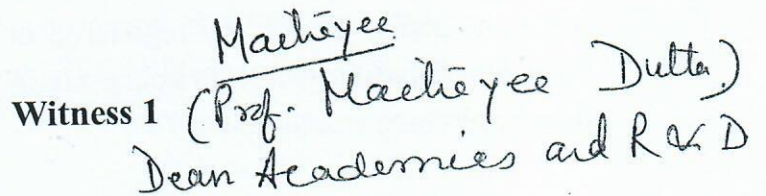 Maitreyee
Witness 1 (Prof. Maitreyee Dutta)
Dean Academics and R & D